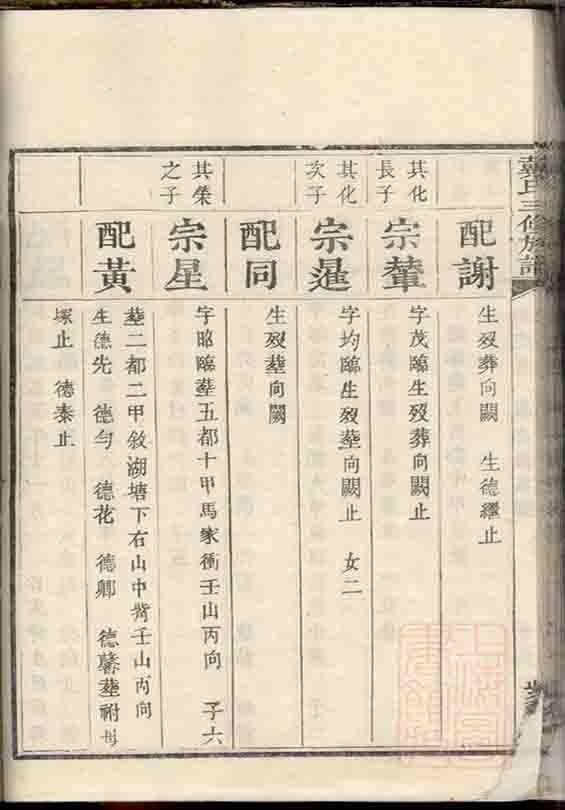 戴氏三修族譜
配謝
生歿葬向闕 生德繼止
其化長子
宗輦
字茂臨生歿葬向闕止
其化次子
宗暹
字均臨生歿塟向闕止 女二
配同
生歿塟向闕
其榮之子
宗星
字昭臨塟五都十甲馬家衝壬山丙向 子六
配黃
塟二都二甲敘湖塘下右山中嘴壬山丙向
生德先 德勻 德花 德卿 德馨塟祔母
塚止 德泰止